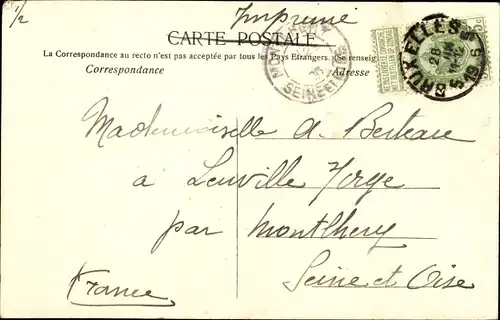 1/2
Imprimé
CARTE POSTALE
La Correspondance au recto n'est pas acceptée par tous les Pays Etrangers. (Se renseig
Correspondance
Adresse
BRUXELLES 5
28
Mademoiselle A.
à Leuville
par Montlhery
Seine et Oise
France